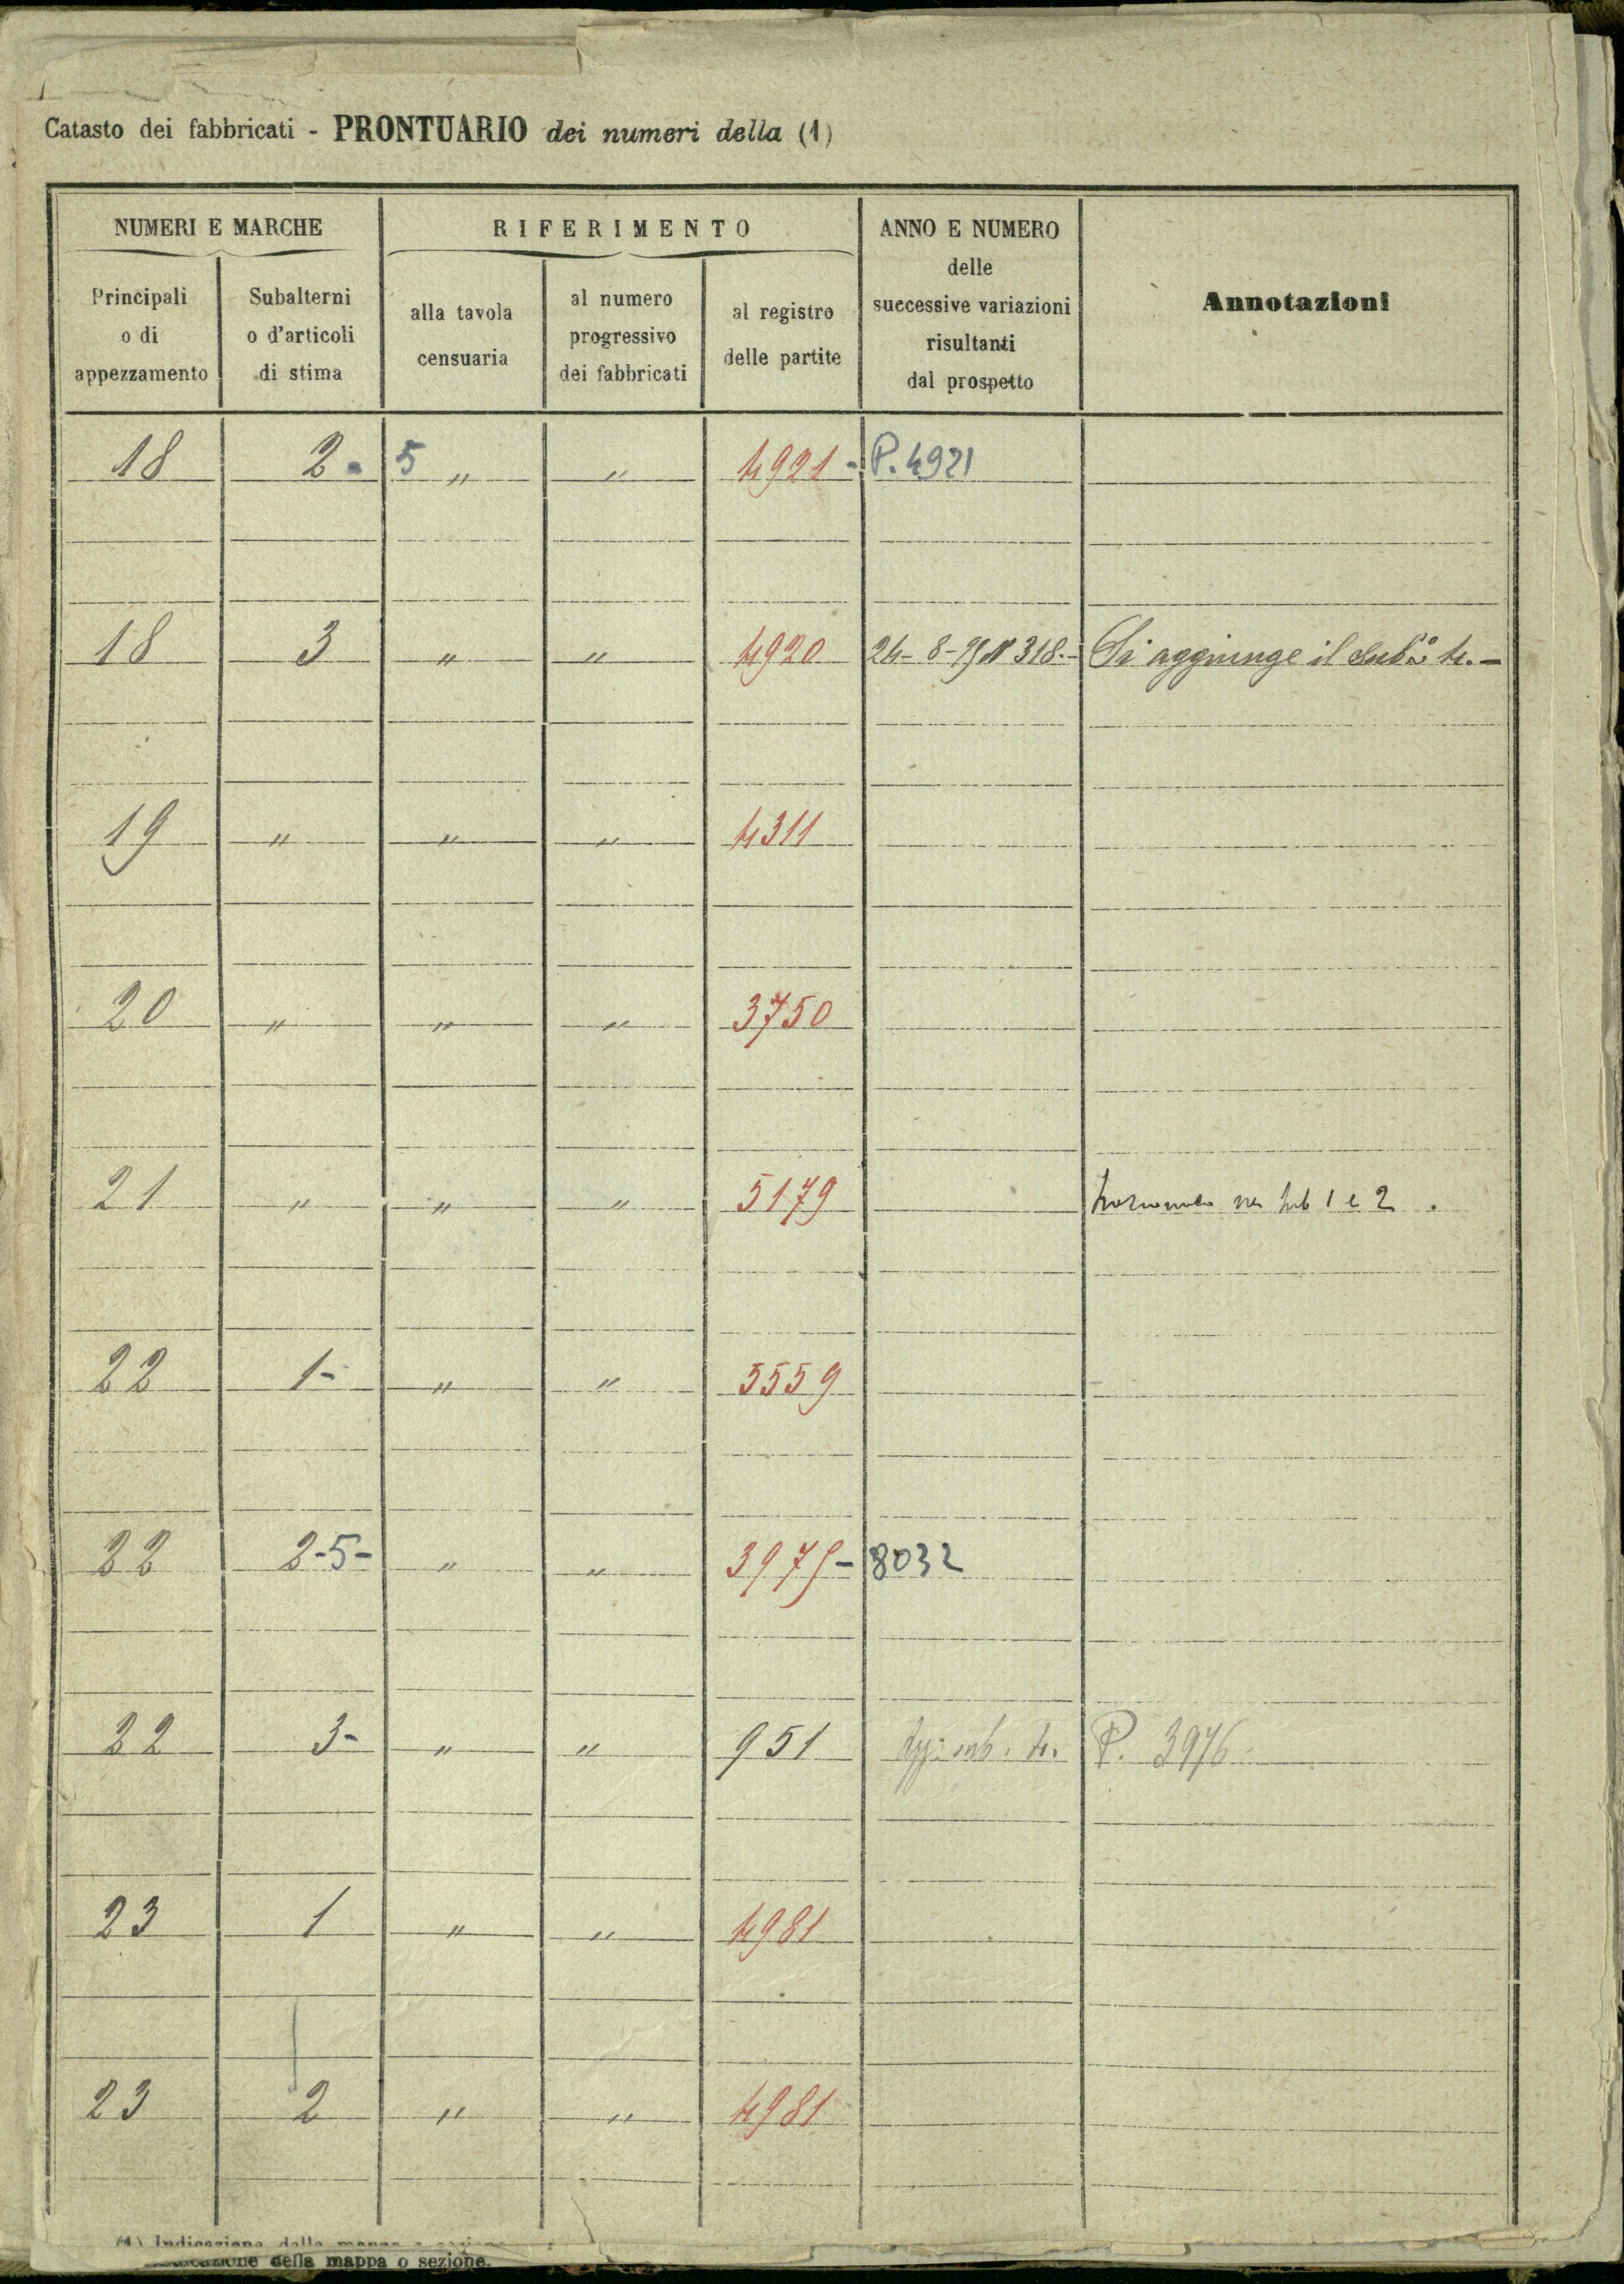 Catasto dei fabbricati - PRONTUARIO dei numeri della (1)
NUMERI E MARCHE
RIFERIMENTO
ANNO E NUMERO
delle
successive variazioni
risultanti
dal prospetto
Annotazioni
Principali
o di
appezzamento
Subalterni
o d'articoli
di stima
alla tavola
censuaria
al numero
progressivo
dei fabbricati
al registro
delle partite
18 2- 5 " " 4921- P. 4921
18 3 " " 4920 24-8-99 N 318.- Si aggiunge il sub.º 4.-
19 " " " 4311
20 " " " 3750
21 " " " 5179 sub 1 e 2 .
22 1- " " 5559
22 2-5- " " 3975- 8032
22 3- " " 951 sub. 4. P. 3976
23 1 " " 4981
23 2 " " 4981
(1) Indicazione della mappa o
Indicazione della mappa o sezione.